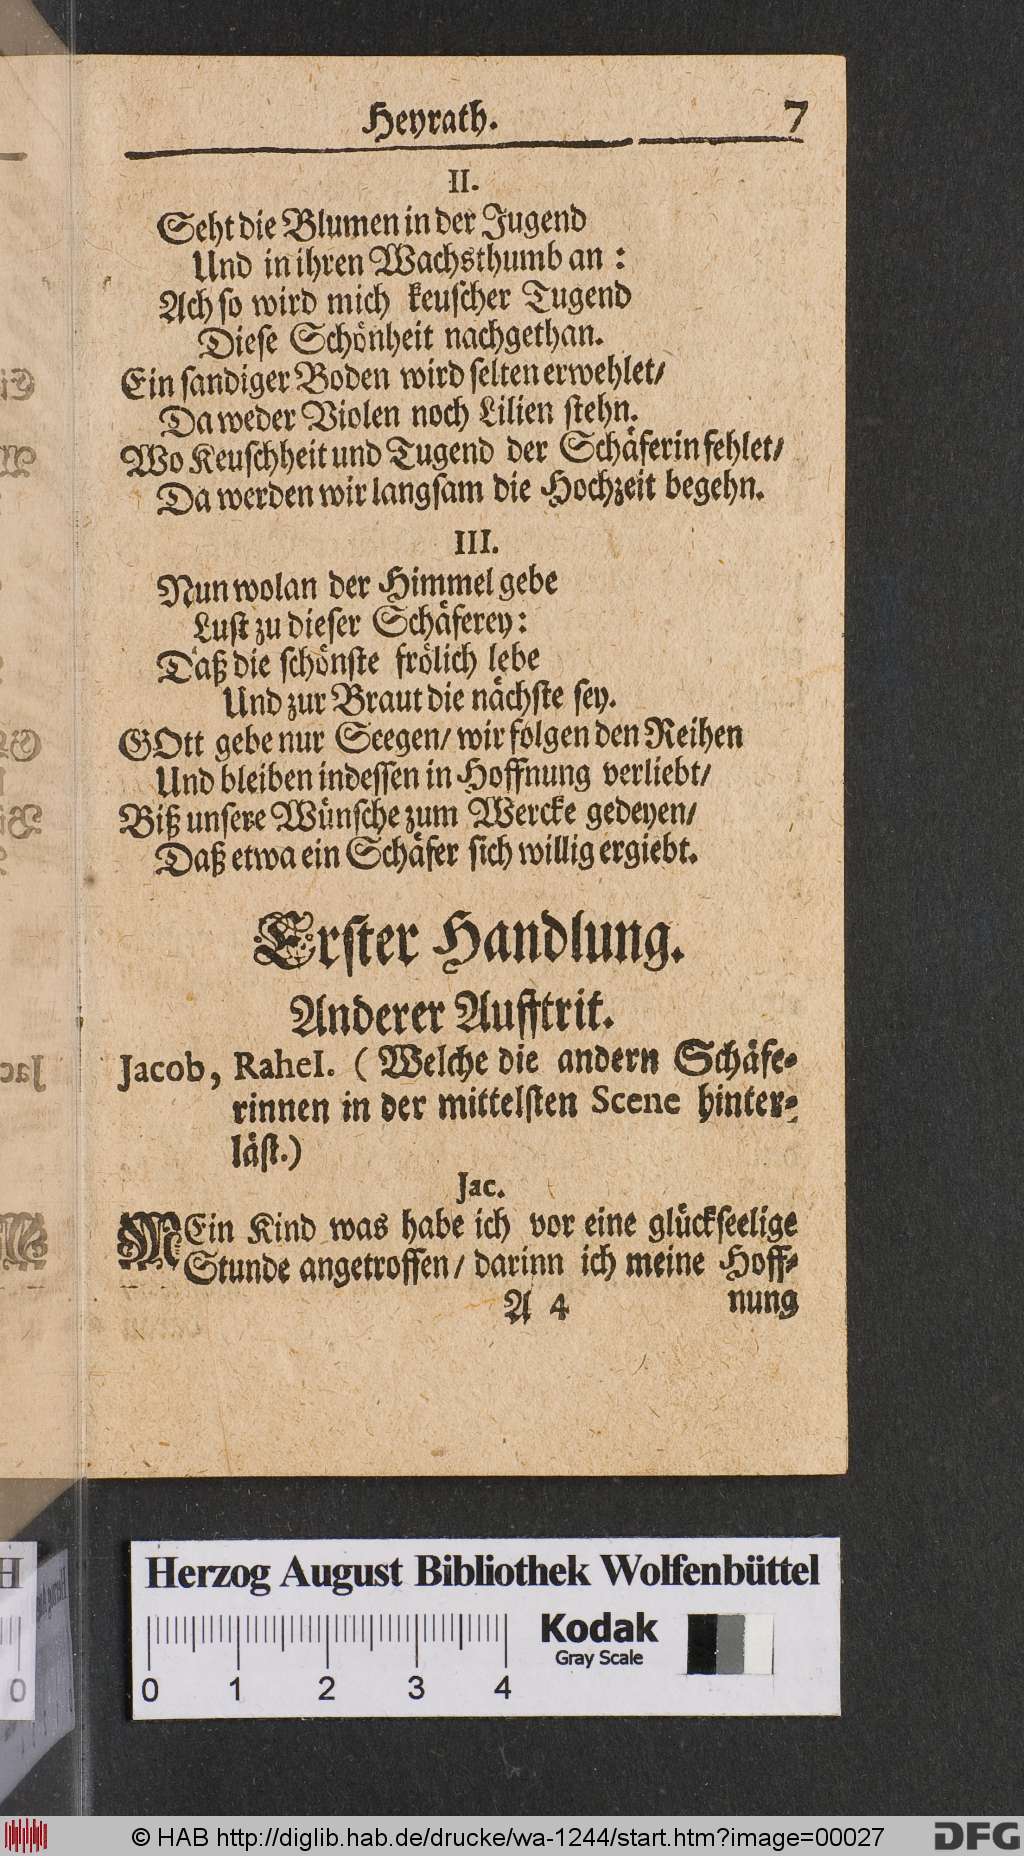 Heyrath. 7
II.
Seht die Blumen in der Jugend
Und in ihren Wachsthumb an:
Ach so wird mich keuscher Tugend
Diese Schönheit nachgethan.
Ein sandiger Boden wird selten erwehlet/
Da weder Violen noch Lilien stehn.
Wo Keuschheit und Tugend der Schäferin fehlet/
Da werden wir langsam die Hochzeit begehn.
III.
Nun wolan der Himmel gebe
Lust zu dieser Schäferey:
Daß die schönste frölich lebe
Und zur Braut die nächste sey.
GOtt gebe nur Seegen/ wir folgen den Reihen
Und bleiben indessen in Hoffnung verliebt/
Biß unsere Wünsche zum Wercke gedeyen/
Daß etwa ein Schäfer sich willig ergiebt.
Erster Handlung.
Anderer Aufftrit.
Jacob, Rahel. (Welche die andern Schäfe-
rinnen in der mittelsten Scene hinter-
läst.)
Jac.
MEin Kind was habe ich vor eine glückseelige
Stunde angetroffen/ darinn ich meine Hoff-
A 4 nung
Herzog August Bibliothek Wolfenbüttel
Kodak
Gray Scale
0 1 2 3 4
© HAB http://diglib.hab.de/drucke/wa-1244/start.htm?image=00027
DFG